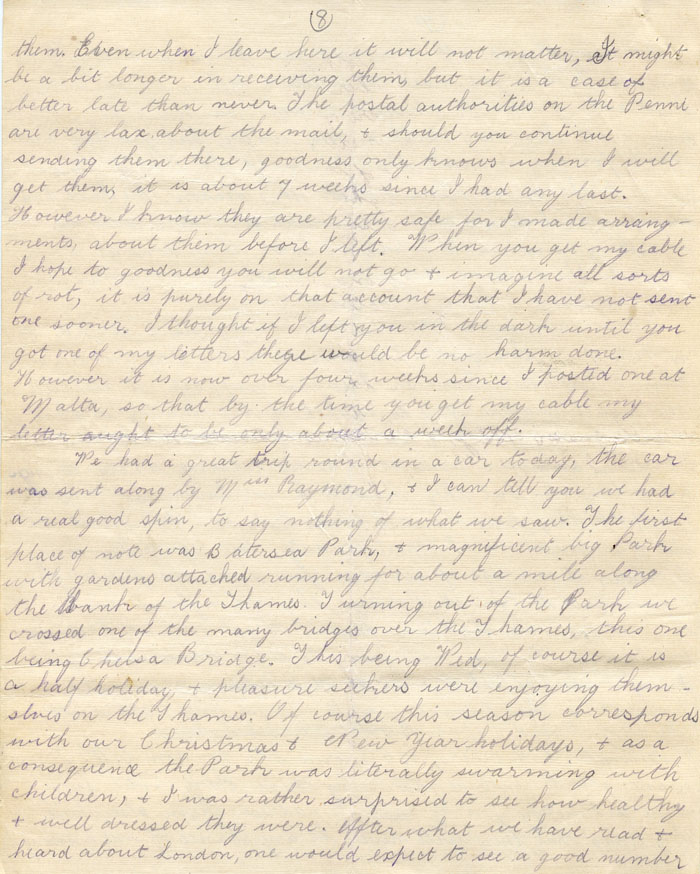 (8)
them. Even when I leave here it will not matter, It might
be a bit longer in receeving them, but it is a case of
better late than never. The postal authorities on the Penni
are very lax, about the mail, & should you continue
sending them there, goodness only knows when I will
get them, it is about 7 weeks since I had any last.
However I know they are pretty safe for I made arrang-
ments, about them before I left. When you get my cable
I hope to goodness you will not go & imagine all sorts
of rot, it is purely on that account that I have not sent
one sooner. I thought if I left you in the dark until you
got one of my letters there would be no harm done.
However it is now over four weeks since I posted one at
Malta, so that by the time you get my cable my
letter aught to be only about a week off.
We had a great trip round in a car today, the car
was sent along by Miss Raymond, & I can tell you we had
a real good spin, to say nothing of what we saw. The first
place of note was Batersea Park, & magnificent big Park
with gardens attached running for about a mile along
the bank of the Thames. Turning out of the Park we
crossed one of the many bridges over the Thames, this one
being Chelsa Bridge. This being Wed, of course it is
a half holiday, & pleasure seekers were enjoying them-
slves on the Thames. Of course this season corresponds
with our Christmas & New Year holidays, & as a
consequence the Park was literally swarming with
children, & I was rather surprised to see how healthy
& well dressed they were. After what we have read &
heard about London, one would expect to see a good number